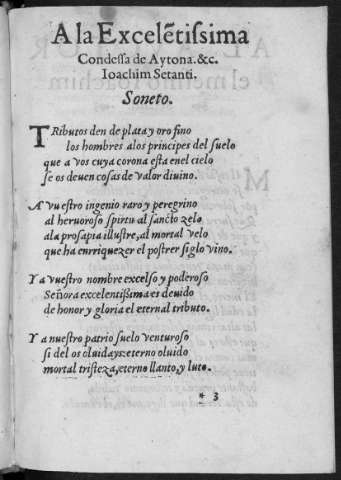 A la Excelẽtissima
Condessa de Aytona. &c.
Ioachim Setanti.
Soneto.
TRibutos den de plata y oro fino
los hombres alos principes del suelo
que a vos cuya corona esta enel cielo
se os deuen cosas de valor diuino.
A vuestro ingenio raro y peregrino
al heruoroso spiritu al sancto zelo
ala prosapia illustre, al mortal velo
que ha enrriquezer el postrer siglo vino.
Y a vuestro nombre excelso y poderoso
Señora excelentissima es deuido
de honor y gloria el eternal tributo.
Y a nuestro patrio suelo venturoso
si del os oluidays: eterno oluido
mortal tristeza, eterno llanto, y luto.
* 3